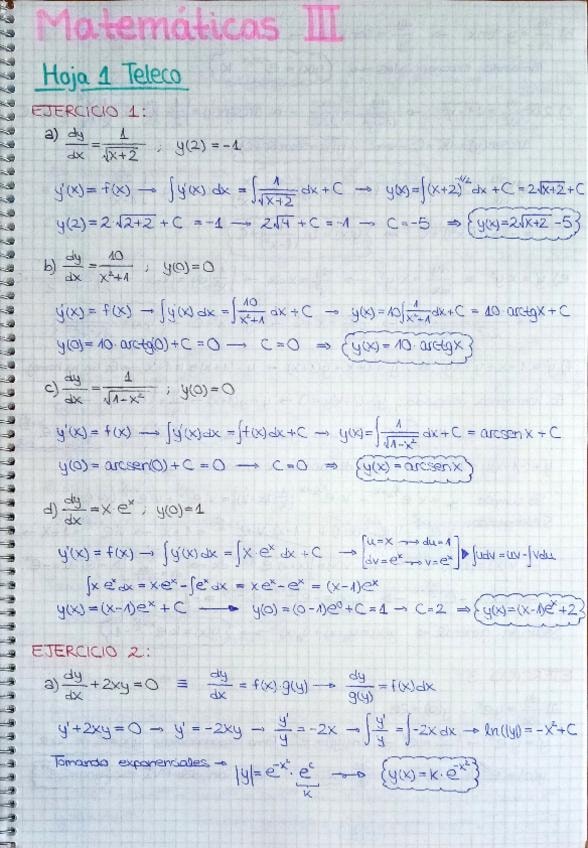 Matemáticas III
Hoja 1 Teleco
EJERCICIO 1:
a) dy/dx = 1/√(x+2) ; y(2) = -1
y'(x) = f(x) → ∫y'(x) dx = ∫1/√(x+2) dx + C → y(x) = ∫(x+2)^(-1/2) dx + C = 2√(x+2) + C
y(2) = 2√(2+2) + C = -1 → 2√4 + C = -1 → C = -5 ⇒ y(x) = 2√(x+2) - 5
b) dy/dx = 10/(x²+1) ; y(0) = 0
y'(x) = f(x) → ∫y'(x) dx = ∫10/(x²+1) dx + C → y(x) = 10∫1/(x²+1) dx + C = 10·arctgx + C
y(0) = 10·arctg(0) + C = 0 → C = 0 ⇒ y(x) = 10·arctgx
c) dy/dx = 1/√(1-x²) ; y(0) = 0
y'(x) = f(x) → ∫y'(x)dx = ∫f(x)dx + C → y(x) = ∫1/√(1-x²) dx + C = arcsen x + C
y(0) = arcsen(0) + C = 0 → C = 0 ⇒ y(x) = arcsen x
d) dy/dx = x·eˣ ; y(0) = 1
y'(x) = f(x) → ∫y'(x) dx = ∫x·eˣ dx + C → [u=x → du=1 dv=eˣ → v=eˣ] ▶ ∫udv = uv - ∫vdu
∫x eˣ dx = x·eˣ - ∫eˣ dx = x·eˣ - eˣ = (x-1)eˣ
y(x) = (x-1)eˣ + C → y(0) = (0-1)e⁰ + C = 1 → C = 2 ⇒ y(x) = (x-1)eˣ + 2
EJERCICIO 2:
a) dy/dx + 2xy = 0 ≡ dy/dx = f(x)·g(y) → dy/g(y) = f(x)dx
y' + 2xy = 0 → y' = -2xy → y'/y = -2x → ∫y'/y = ∫-2x dx → ln(|y|) = -x² + C
Tomando exponenciales → |y| = e^(-x²) · e^c → y(x) = k·e^(-x²)
k